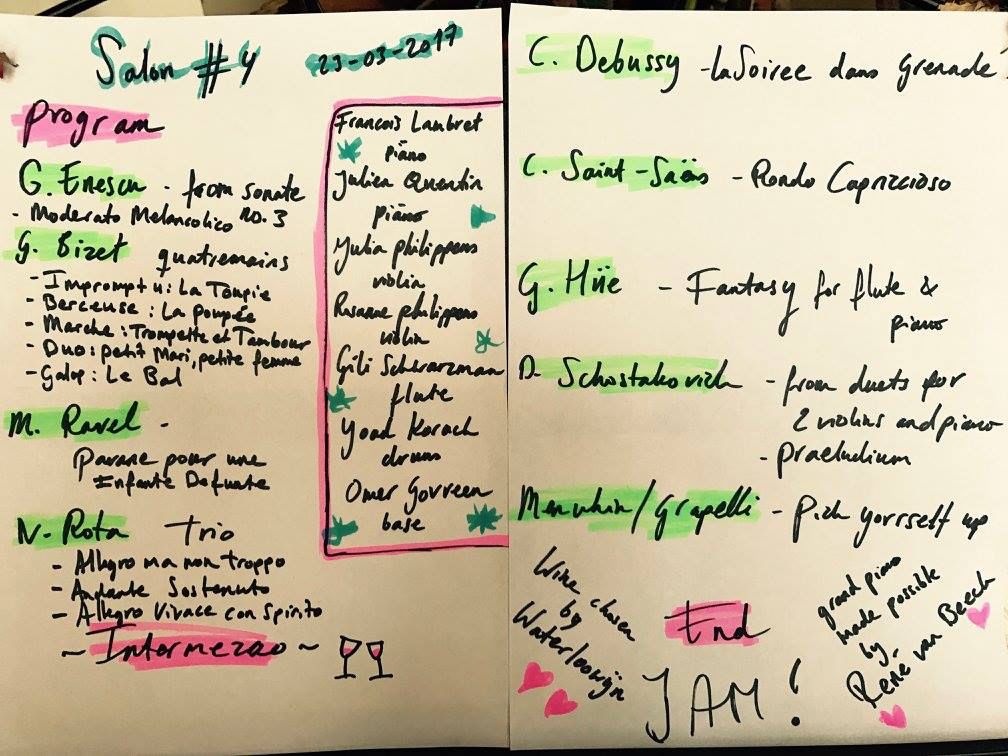 Salon #4
23-03-2017
Program
G. Enescu - from sonate
- Moderato Melancolico no. 3
G. Bizet quatremains
- Impromptu: La Toupie
- Berceuse: La poupée
- Marche: Trompette et Tambour
- Duo: petit Mari, petite femme
- Galop: Le Bal
M. Ravel -
Pavane pour une
Enfante Defunte
N. Rota Trio
- Allegro ma non troppo
- Andante Sostenuto
- Allegro Vivace con Spirito
~ Intermezzo ~
Francois Lambret
piano
Julien Quentin
piano
Julia philippens
violin
Rosanne philippens
violin
Gili Schwarzman
flute
Yoad Korach
drums
Omer Govreen
base
C. Debussy - la Soiree dans Grenade
C. Saint-Saëns - Rondo Capriccioso
G. Hüe - Fantasy for flute &
piano
D. Schostakovich - from duets for
2 violins and piano
- Praeludium
Menuhin/Grapelli - Pick yourself up
Wine chosen
by
Waterloowijn
End
JAM!
grand piano
made possible
by
René van Beech